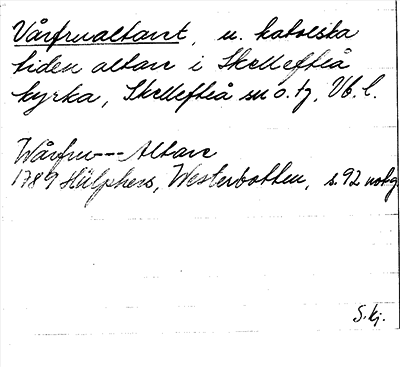 Vårfrualtaret, u. katolska
tiden altare i Skellefteå
kyrka, Skellefteå sn o. tg, Vb. l.
Wårfru--- Altare
1789 Hülphers, Westerbotten, s. 92 not g.
S. kj.